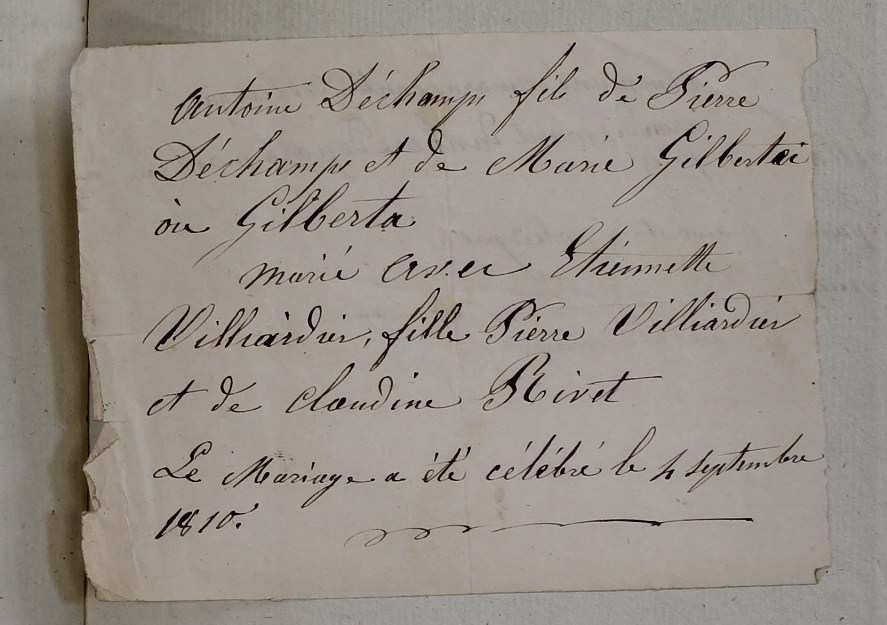 Antoine Déchamps fils de Pierre
Déchamps et de Marie Gilbertai
ou Gilberta
marié avec Etiennette
Villiardier, fille Pierre Villiardier
et de claudine Rivet
Le Mariage a été célébré le 4 septembre
1810.